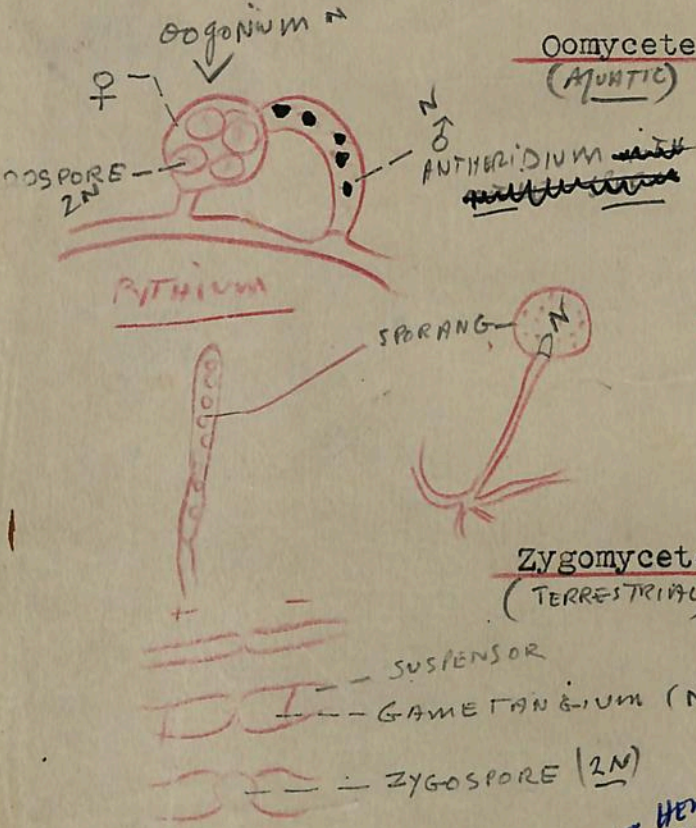 oogonium N
Oomycete
(AQUATIC)
♀
N
♂
OOSPORE
2N
ANTHERIDIUM
PYTHIUM
SPORANG
N
Zygomycet
(TERRESTRIAL
+ −
SUSPENSOR
GAMETANGIUM (N
ZYGOSPORE (2N)